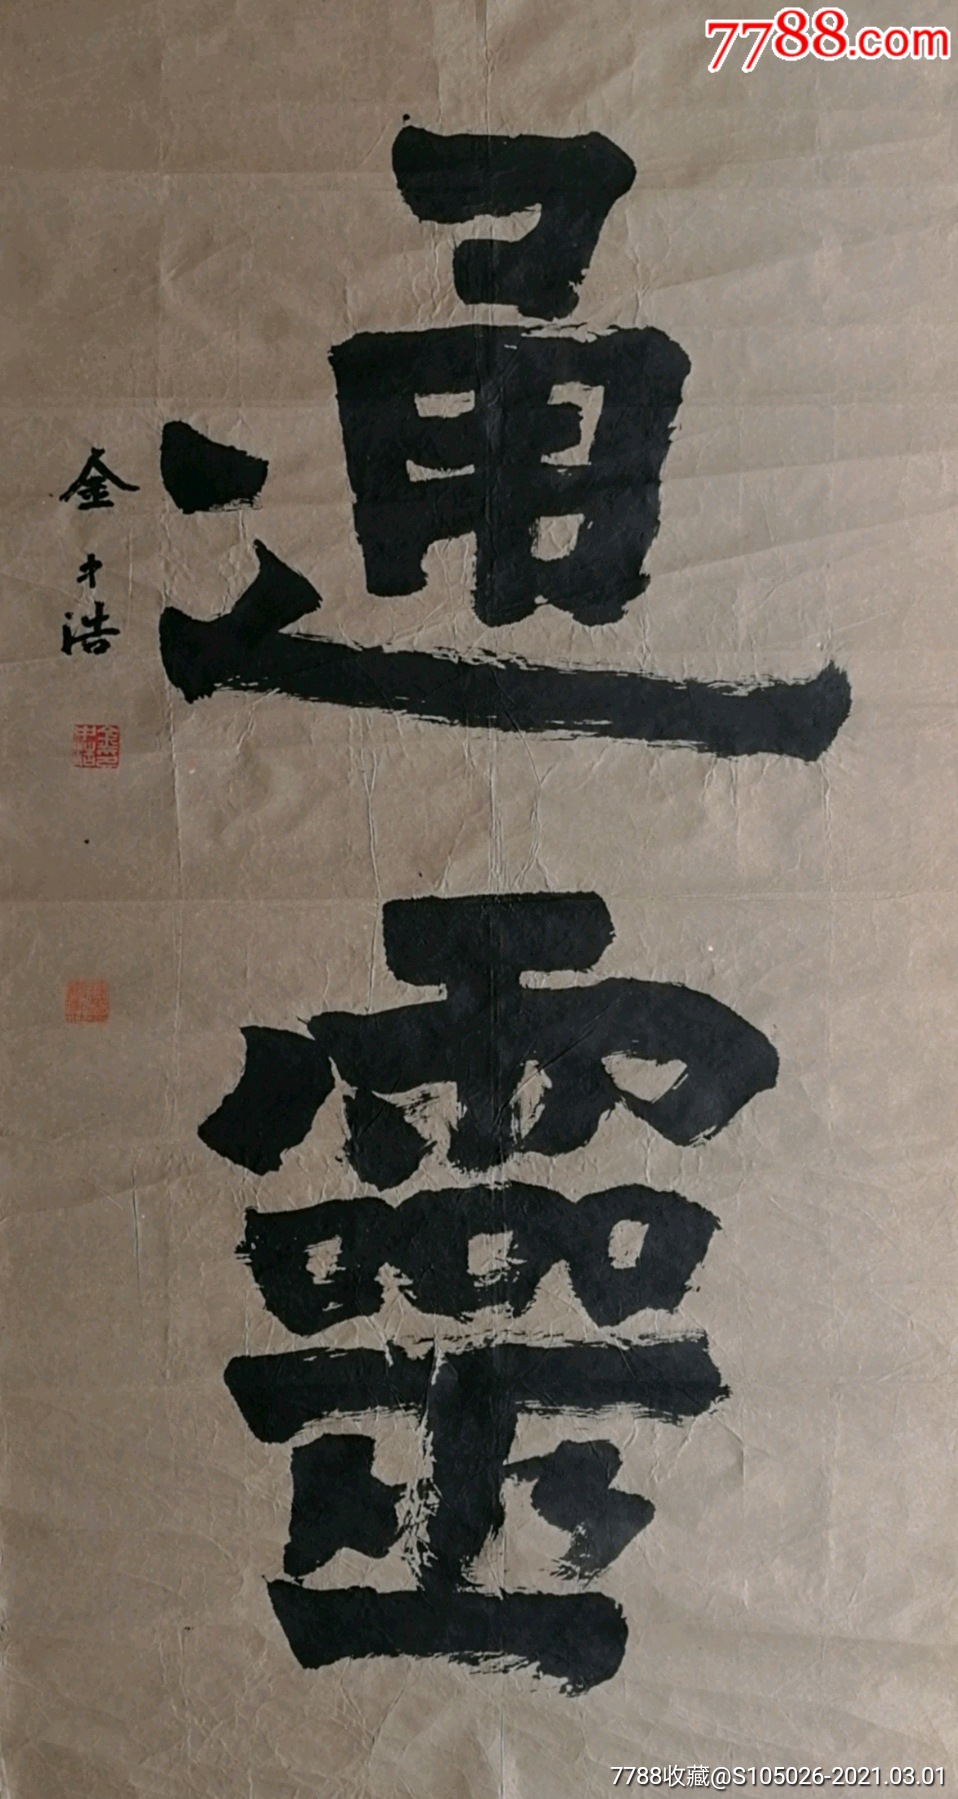 7788.com
通靈
金中浩
7788收藏@S105026-2021.03.01